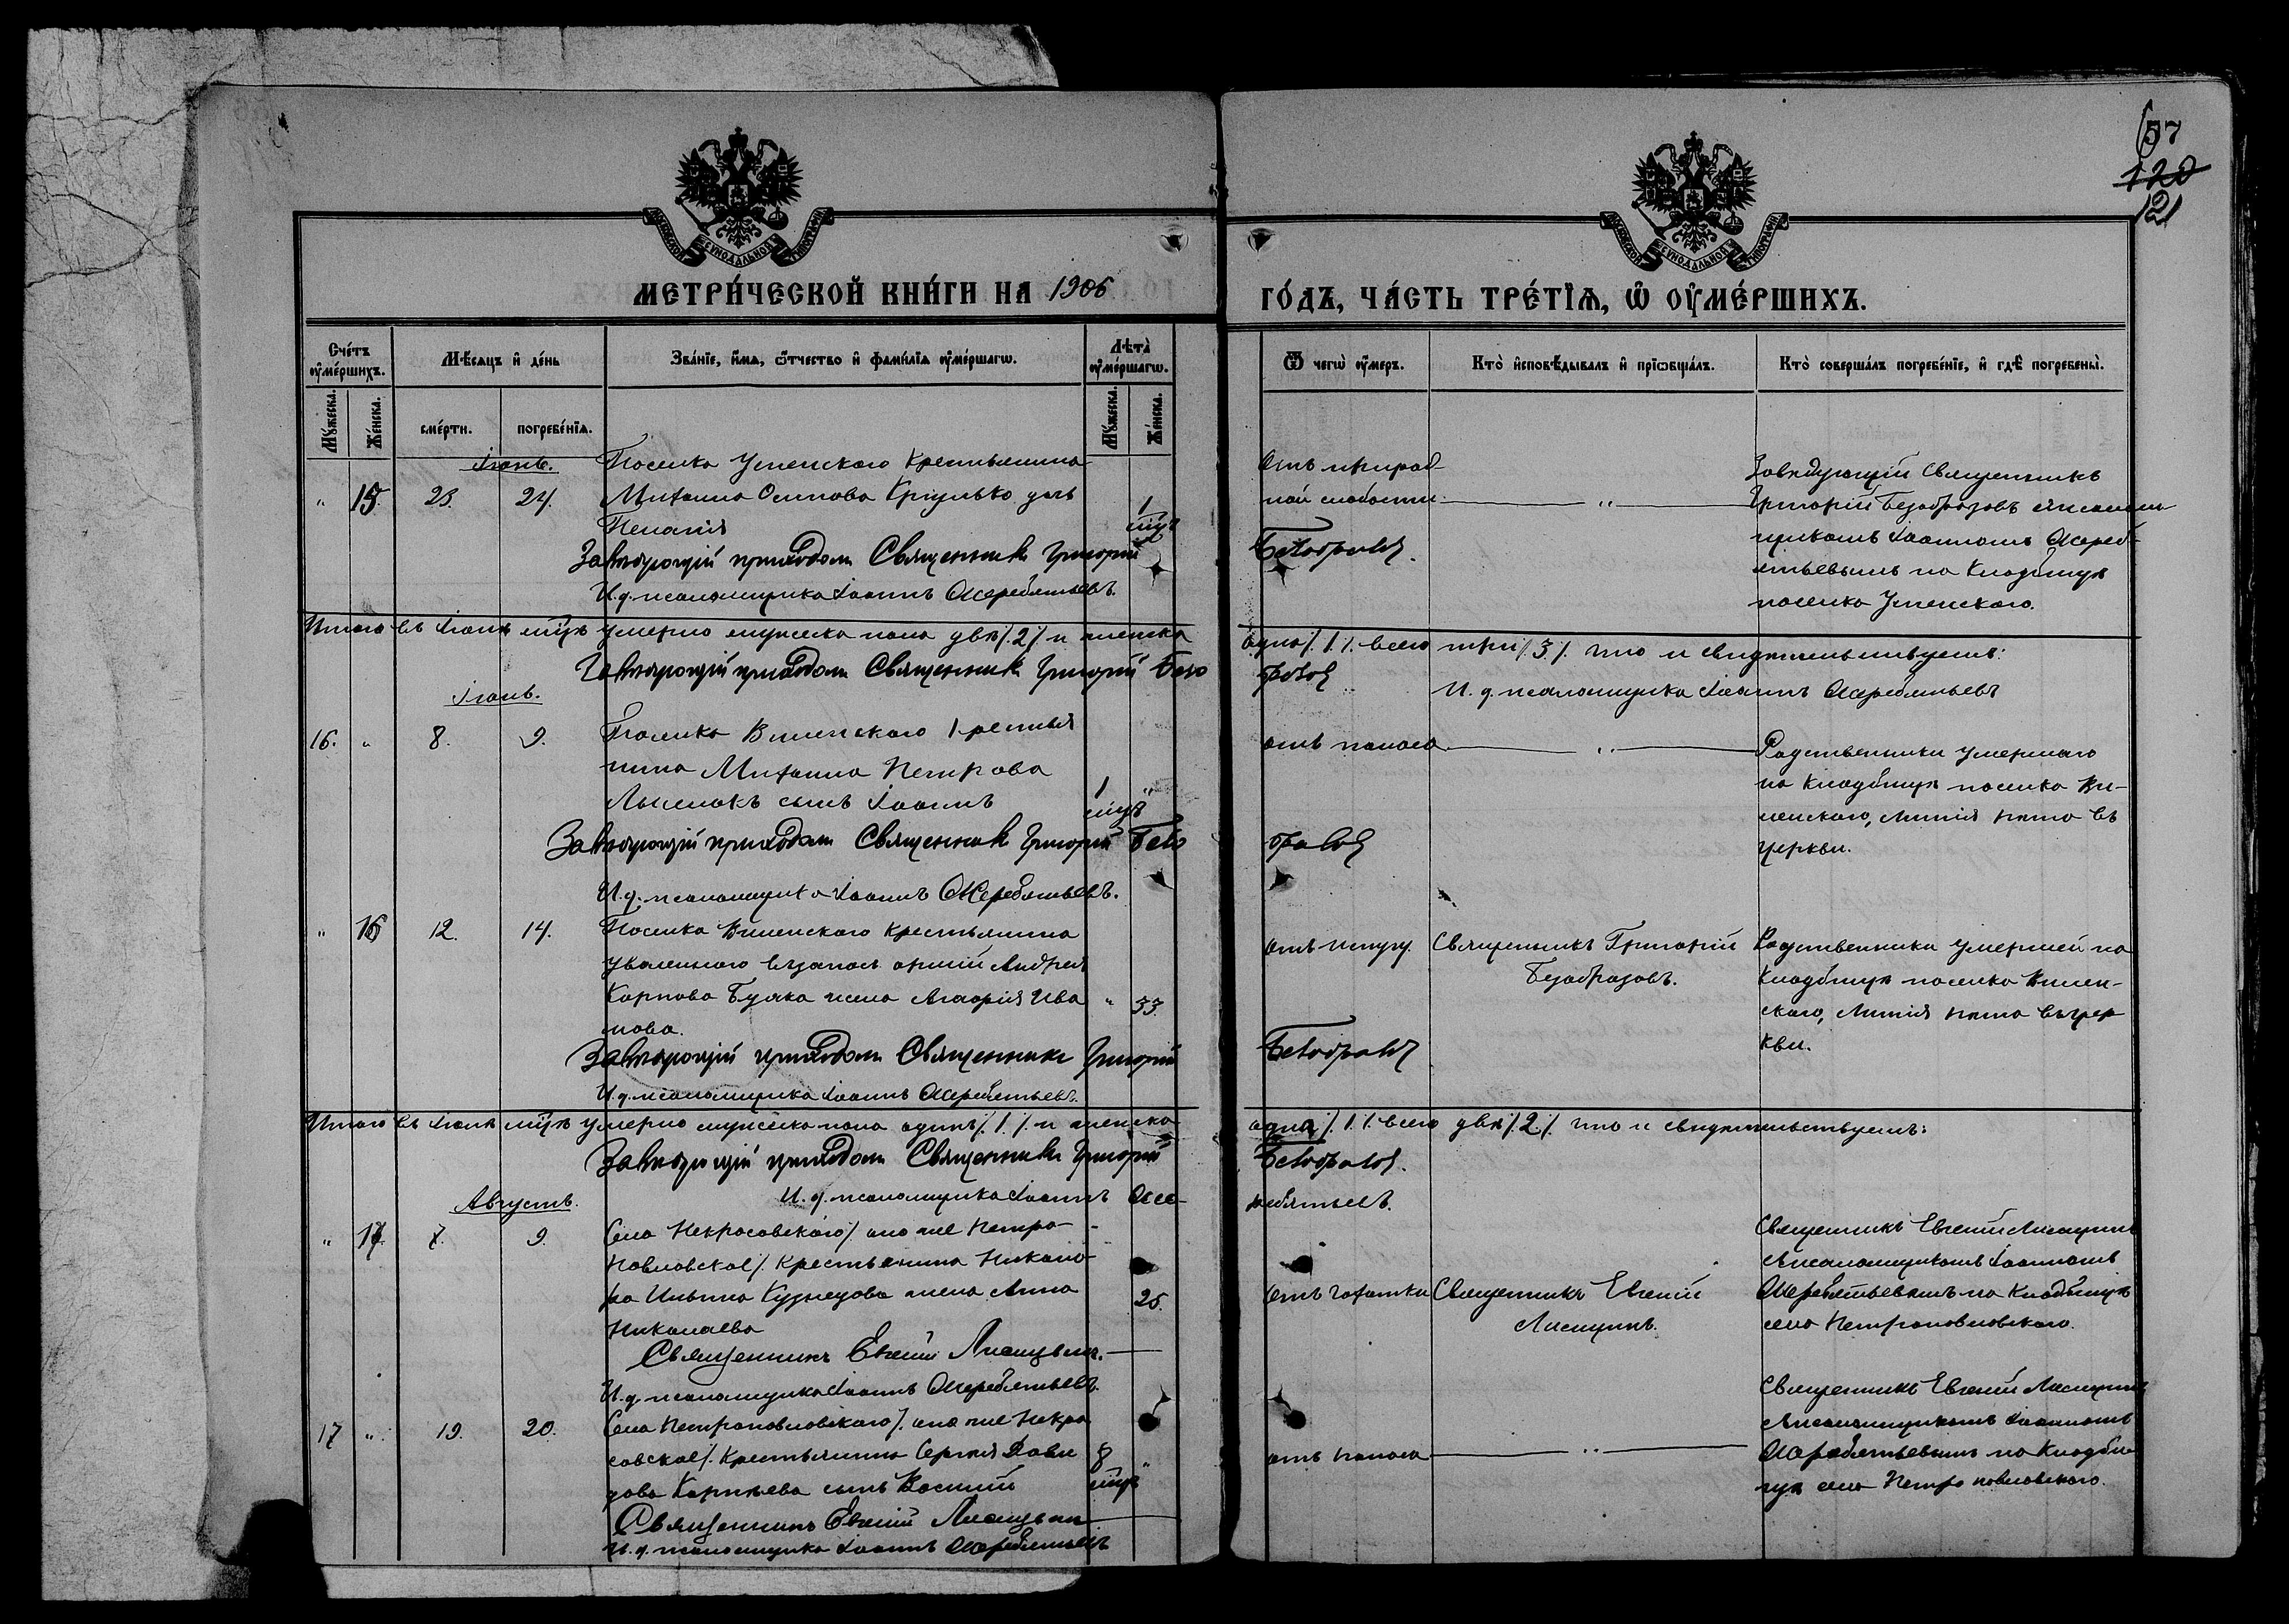 57
120
121
МОСКОВСКОЙ СѴНОДАЛЬНОЙ ТИПОГРАФІИ
МОСКОВСКОЙ СѴНОДАЛЬНОЙ ТИПОГРАФІИ
МЕТРИ́ЧЕСКОЙ КНИ́ГИ НА 1906
ГО́ДЪ, ЧА́СТЬ ТРЕ́ТІѦ, Ѡ ОУ҆МЕ́РШИХЪ.
Сче́тъ оу҆ме́ршихъ.
Мѣ́сяцъ и҆ де́нь
Зва́нїе, и҆́мѧ, ѻ҆́тчество и҆ фами́лїѧ оу҆ме́ршагѡ.
Лѣта̀ оу҆ме́ршагѡ.
Ѿ чегѡ̀ оу҆́меръ.
Кто̀ и҆сповѣ́дывалъ и҆ прїѡбща́лъ.
Кто̀ соверша́лъ погребе́нїе, и҆ гдѣ̀ погребены̀.
Мꙋ́жеска. Же́нска.
сме́рти. погребе́нїѧ.
Мꙋ́жеска. Же́нска.
Іюнь.
Поселка Успенскаго Крестьянина
" 15. 23. 24. Михаила Осипова дочь 1
Пелагія мѣс
Завѣдующій приходомъ Священникъ Григорій
Безобразовъ.
И.д. псаломщика Іоаннъ Жеребятьевъ.
отъ природ-
ной слабости "
Завѣдующій Священникъ
Григорій Безобразовъ съ псалом-
щикомъ Іоанномъ Жереб-
ятьевымъ на кладбищѣ
поселка Успенскаго.
Итого въ Іюнѣ мѣсяцѣ умерло мужеска пола два /2/ и женска
одна /1/ всего три /3/. что и свидѣтельствуемъ:
Завѣдующій приходомъ Священникъ Григорій Безо
бразовъ
И. д. псаломщика Іоаннъ Жеребятьевъ
Іюль.
16. " 8. 9. Поселка Виленскаго Крестья
нина Михаила Петрова
сынъ Іоаннъ 1 "
мѣс
Завѣдующій приходомъ Священникъ Григорій Безо
бразовъ
И.д. псаломщика Іоаннъ Жеребятьевъ.
отъ поноса "
Родственники умершаго
на кладбищѣ поселка Ви-
ленскаго, Литія пѣта въ
церкви.
" 16 12. 14. Поселка Виленскаго крестьянина
уволеннаго въ запасъ арміи Андрея
Карпова Буяка жена Ива " 33.
нова.
Завѣдующій приходомъ Священникъ Григорій
Безобразовъ
И.д. псаломщика Іоаннъ Жеребятьевъ.
отъ испугу.
Священникъ Григорій
Безобразовъ.
Родственники умершей на
кладбищѣ поселка Вилен-
скаго, Литія пѣта въ цер
кви.
Итого въ Іюлѣ мѣсяцѣ умерло мужеска пола одинъ /1/ и женска
одна /1/ всего два /2/. что и свидѣтельствуемъ:
Завѣдующій приходомъ Священникъ Григорій
Безобразовъ.
И. д. псаломщика Іоаннъ Же-
ребятьевъ.
Августъ.
" 17. 7. 9. Села Некрасовскаго /оно же Петро-
павловское/. Крестьянина Никано-
ра Ильина Кузнецова жена Анна 25.
Николаева
Священникъ Евгеній Лисицынъ.
И.д. псаломщика Іоаннъ Жеребятьевъ.
отъ чахотки
Священникъ Евгеній
Лисицынъ.
Священникъ Евгеній Лисицынъ
съ псаломщикомъ Іоанномъ
Жеребятьевымъ на кладбищѣ
села Петропавловскаго.
17 " 19. 20. Села Петропавловскаго /. оно же Некра
совское/. Крестьянина Сергѣя Дави 8 "
дова сынъ Василій мѣс
Священникъ Евгеній Лисицынъ
И. д. псаломщика Іоаннъ Жеребятьевъ
отъ поноса "
Священникъ Евгеній Лисицынъ
съ псаломщикомъ Іоанномъ
Жеребятьевымъ на кладби
щѣ села Петропавловскаго.